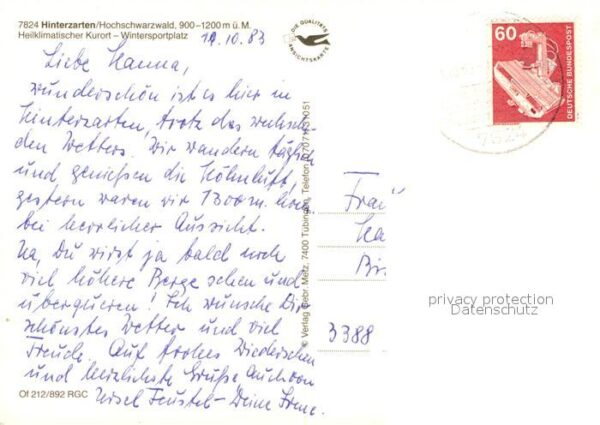 7824 Hinterzarten/Hochschwarzwald, 900–1200 m ü. M.
Heilklimatischer Kurort – Wintersportplatz
19.10.83
DIE QUALITÄTS
ANSICHTSKARTE
60
DEUTSCHE BUNDESPOST
Liebe Hanna,
wunderschön ist es hier in
Hinterzarten, trotz des wechseln-
den Wetters. Wir wandern täglich
und genießen die Höhenluft,
gestern waren wir 1300m hoch
bei herrlicher Aussicht.
Na, Du wirst ja bald noch
viel höhere Berge sehen und
überqueren! Ich wünsche Dir
schönstes Wetter und viel
Freude. Auf frohes Wiedersehen
und herzlichste Grüße Auch von
Ursel Deine Irene.
© Verlag Gebr. Metz, 7400 Tübingen, Telefon
Frau
Ha
3388
privacy protection
Datenschutz
Of 212/892 RGC